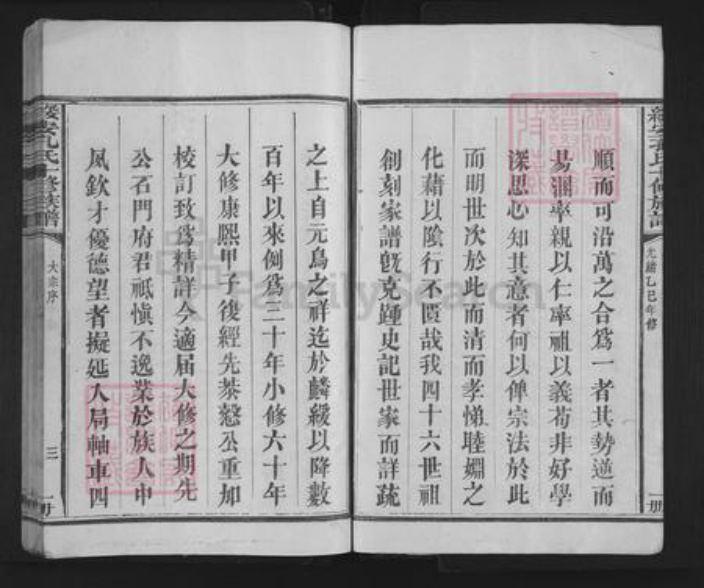 順而可沿萬之合爲一者其勢逆而
易涸率親以仁率祖以義苟非好學
深思心知其意者何以俾宗法於此
而明世次於此而清而孝悌睦婣之
化藉以陰行不匱哉我四十六世祖
創刻家譜旣克踵史記世家而詳疏
之上自元鳥之祥迄於麟紱以降數
百年以來例爲三十年小修六十年
大修康熙甲子後經先恭慤公重加
校訂致爲精詳今適屆大修之期先
公石門府君祗愼不逸業於族人中
夙欽才優德望者擬延入局軸車四
光緒乙巳年修
一册
綏安孔氏十修族譜
大宗序
三
一册
FamilySearch